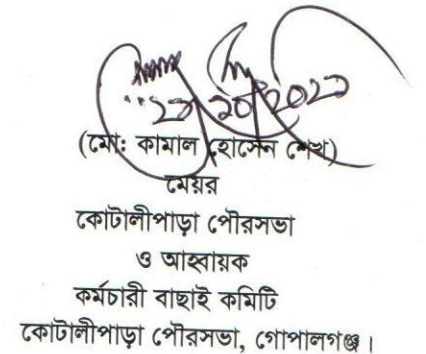 (মো: কামাল হোসেন শেখ)
মেয়র
কোটালীপাড়া পৌরসভা
ও আহ্বায়ক
কর্মচারী বাছাই কমিটি
কোটালীপাড়া পৌরসভা, গোপালগঞ্জ।